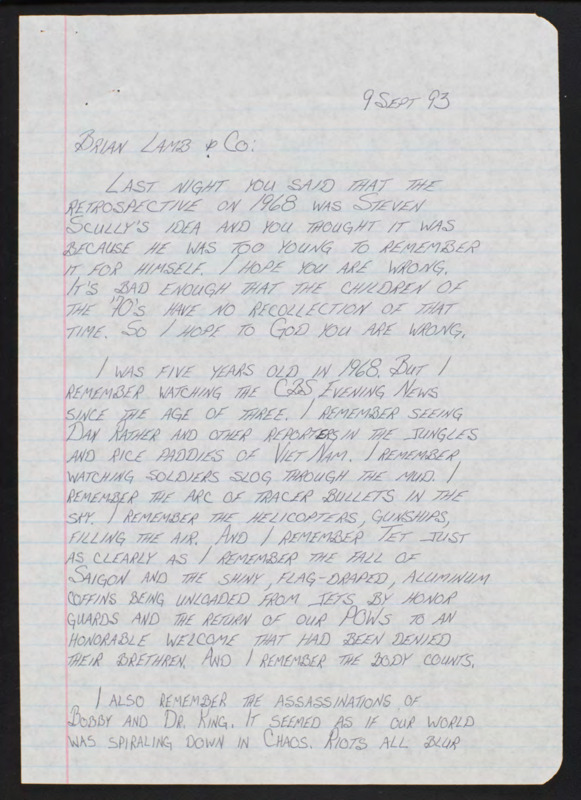 9 Sept 93
Brian Lamb & Co:
Last night you said that the
retrospective on 1968 was Steven
Scully's idea and you thought it was
because he was too young to remember
it for himself. I hope you are wrong.
It's bad enough that the children of
the '70's have no recollection of that
time. So I hope to God you are wrong.
I was five years old in 1968. But I
remember watching the CBS Evening News
since the age of three. I remember seeing
Dan Rather and other reporters in the jungles
and rice paddies of Viet Nam. I remember
watching soldiers slog through the mud. I
remember the arc of tracer bullets in the
sky. I remember the helicopters, gunships,
filling the air. And I remember Tet just
as clearly as I remember the fall of
Saigon and the shiny, flag-draped, aluminum
coffins being unloaded from jets by honor
guards and the return of our POWs to an
honorable welcome that had been denied
their brethren. And I remember the body counts.
I also remember the assassinations of
Bobby and Dr. King. It seemed as if our world
was spiraling down in chaos. Riots all blur